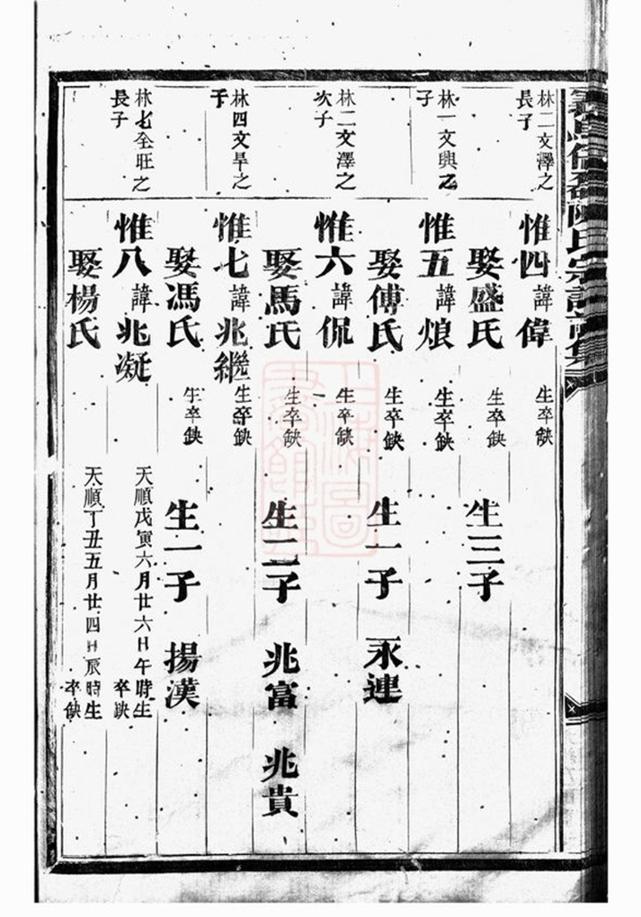 林二文澤之
長子
惟四 諱偉 生卒缺
娶盛氏 生卒缺 生三子
林一文興之
子
惟五 諱烺 生卒缺
娶傅氏 生卒缺 生一子 永連
林二文澤之
次子
惟六 諱侃 生卒缺
娶馬氏 生二子 兆富 兆貴
林四文旱之
子
惟七 諱兆繼 生卒缺
娶馮氏 生卒缺 生一子 揚漢
林七全旺之
長子
惟八 諱兆凝 天順戊寅六月廿六日午時生 卒缺
娶楊氏 天順丁丑五月廿四日辰時生 卒缺